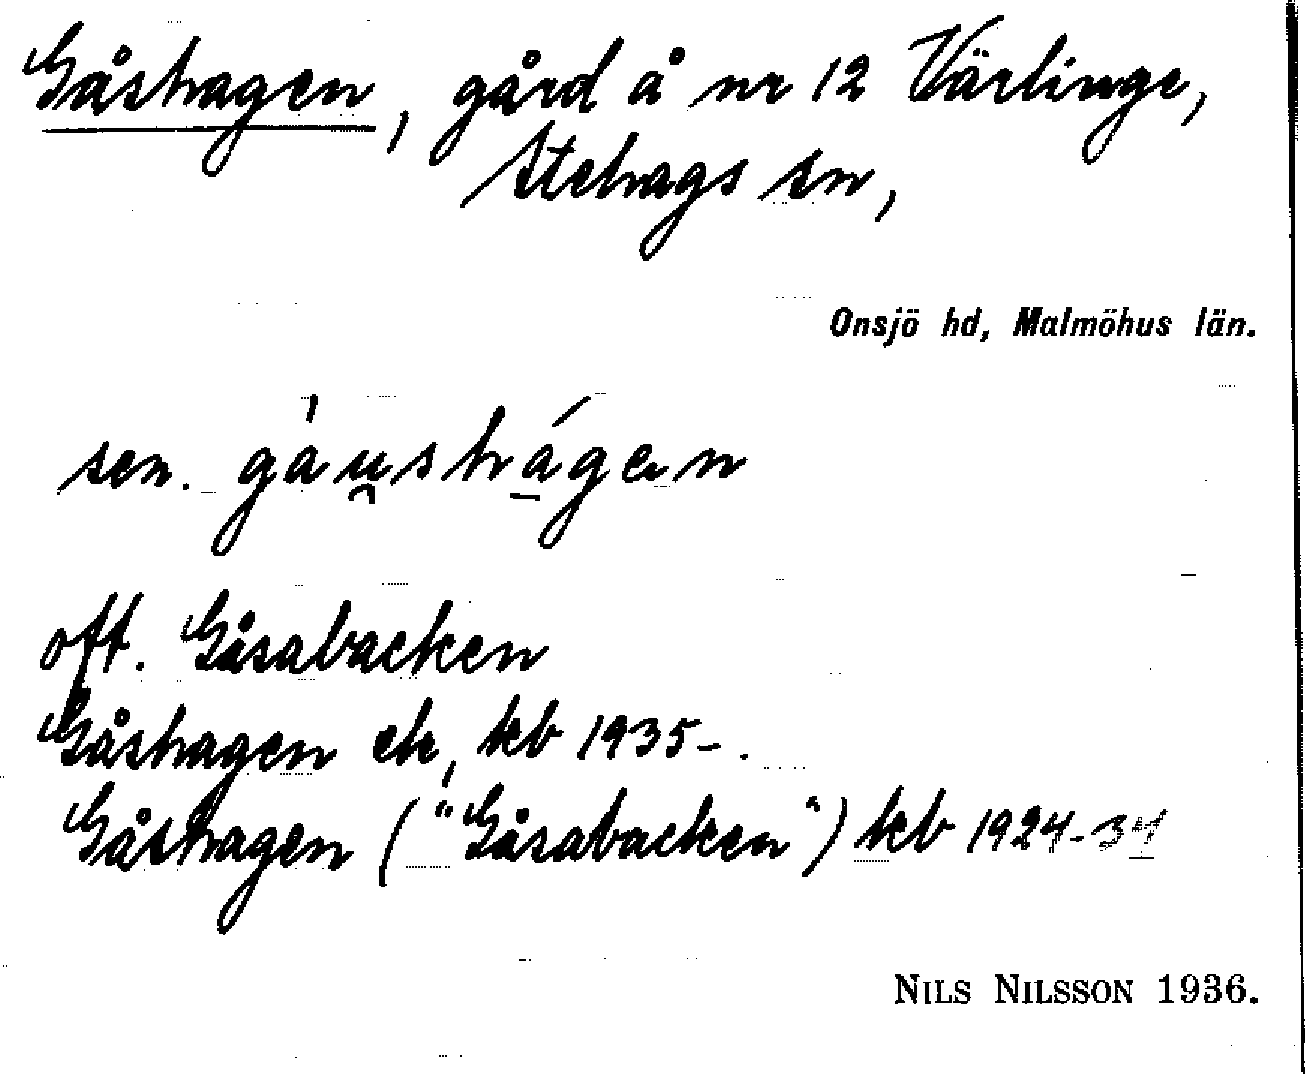 Gåshagen, gård å nr 12 Värlinge,
Stehags sn,
Onsjö hd, Malmöhus län.
sen. gau̯shágen
oft. Gåsabacken
Gåshagen ek, kb 1935-.
Gåshagen ("Gåsabacken") kb 1924-34
NILS NILSSON 1936.